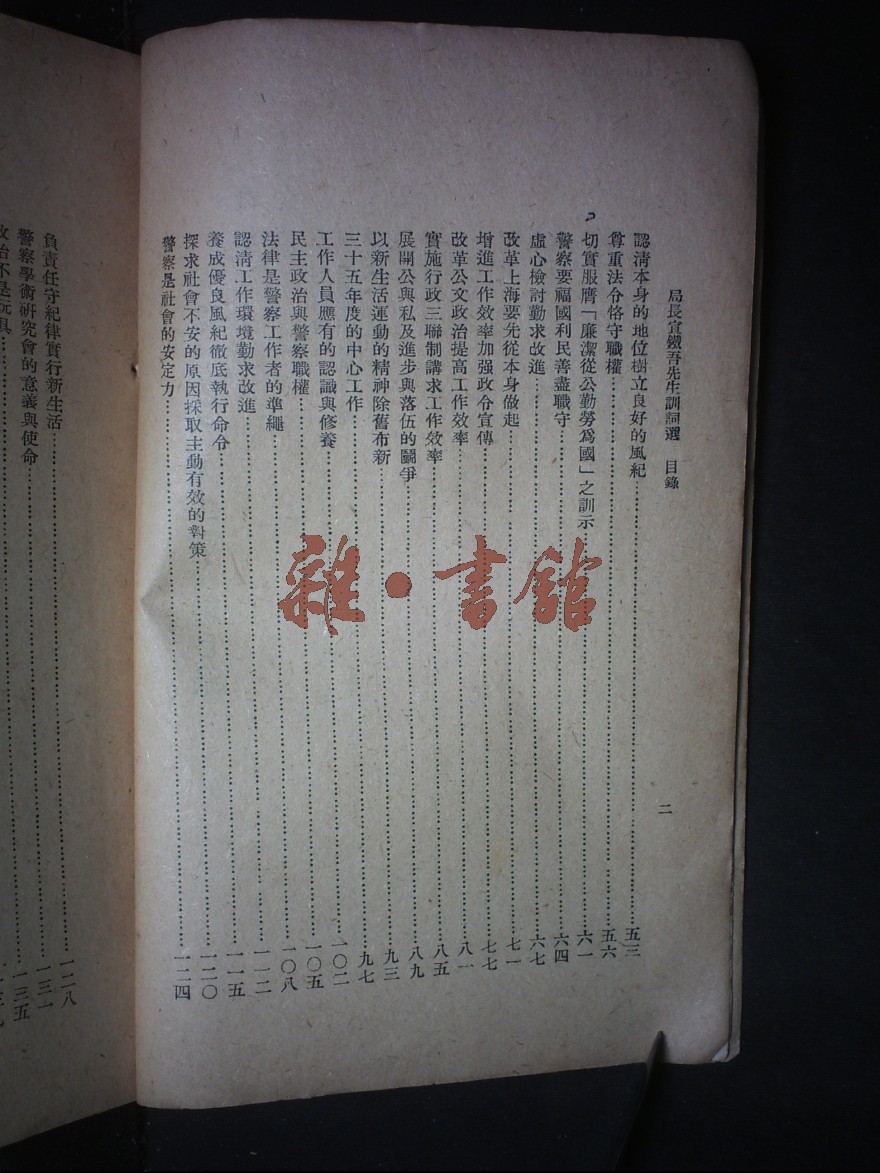 局長宣鐵吾先生訓詞選　目錄　二
認清本身的地位樹立良好的風紀……五三
尊重法令恪守職權……五六
切實服膺「廉潔從公勤勞爲國」之訓示……六一
警察要福國利民善盡職守……六四
虛心檢討勤求改進……六七
改革上海要先從本身做起……七一
增進工作效率加强政令宣傳……七七
改革公文政治提高工作效率……八一
實施行政三聯制講求工作效率……八五
展開公與私及進步與落伍的鬭爭……八九
以新生活運動的精神除舊布新……九三
三十五年度的中心工作……九七
工作人員應有的認識與修養……一〇二
民主政治與警察職權……一〇五
法律是警察工作者的準繩……一〇八
認清工作環境勤求改進……一一二
養成優良風紀徹底執行命令……一一五
探求社會不安的原因採取主動有效的對策……一二〇
警察是社會的安定力……一二四
負責任守紀律實行新生活……一二八
警察學術研究會的意義與使命……一三一
政治不是玩具……一三五
雜·書館